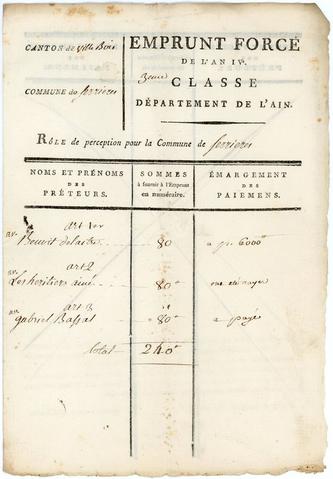 CANTON de Ville Bois
COMMUNE de serrieres
EMPRUNT FORCÉ
DE L'AN IVe.
3eme CLASSE
DÉPARTEMENT DE L'AIN.
RÔLE de perception pour la Commune de serrieres
NOMS ET PRÉNOMS
DES
PRÊTEURS.
SOMMES
à fournir à l'Emprunt
en numéraire.
ÉMARGEMENT
DES
PAIEMENS.
art 1er
Benoit 80 a p. 6000
art 2
Les heritiers aimé 80
art 3
gabriel Bassat 80 a payé
total 240